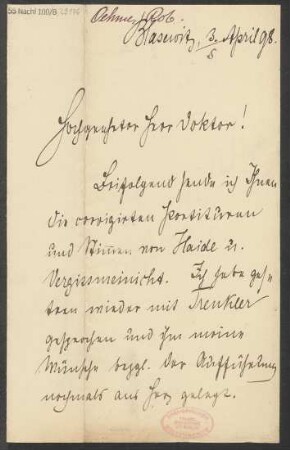 55 Nachl 100/B,
Oehme, Rob.
Blasewitz, 3. April 98.
Hochgeehrter Herr Doktor!
Beifolgend sende ich Ihnen
die corrigirten Partituren
und Stimmen von Haide u.
Vergissmeinicht. Ich habe ges-
tern wieder mit Trenkler
gesprochen und ihm meine
Wünsche bezgl. der Aufführung
nochmals ans Herz gelegt.